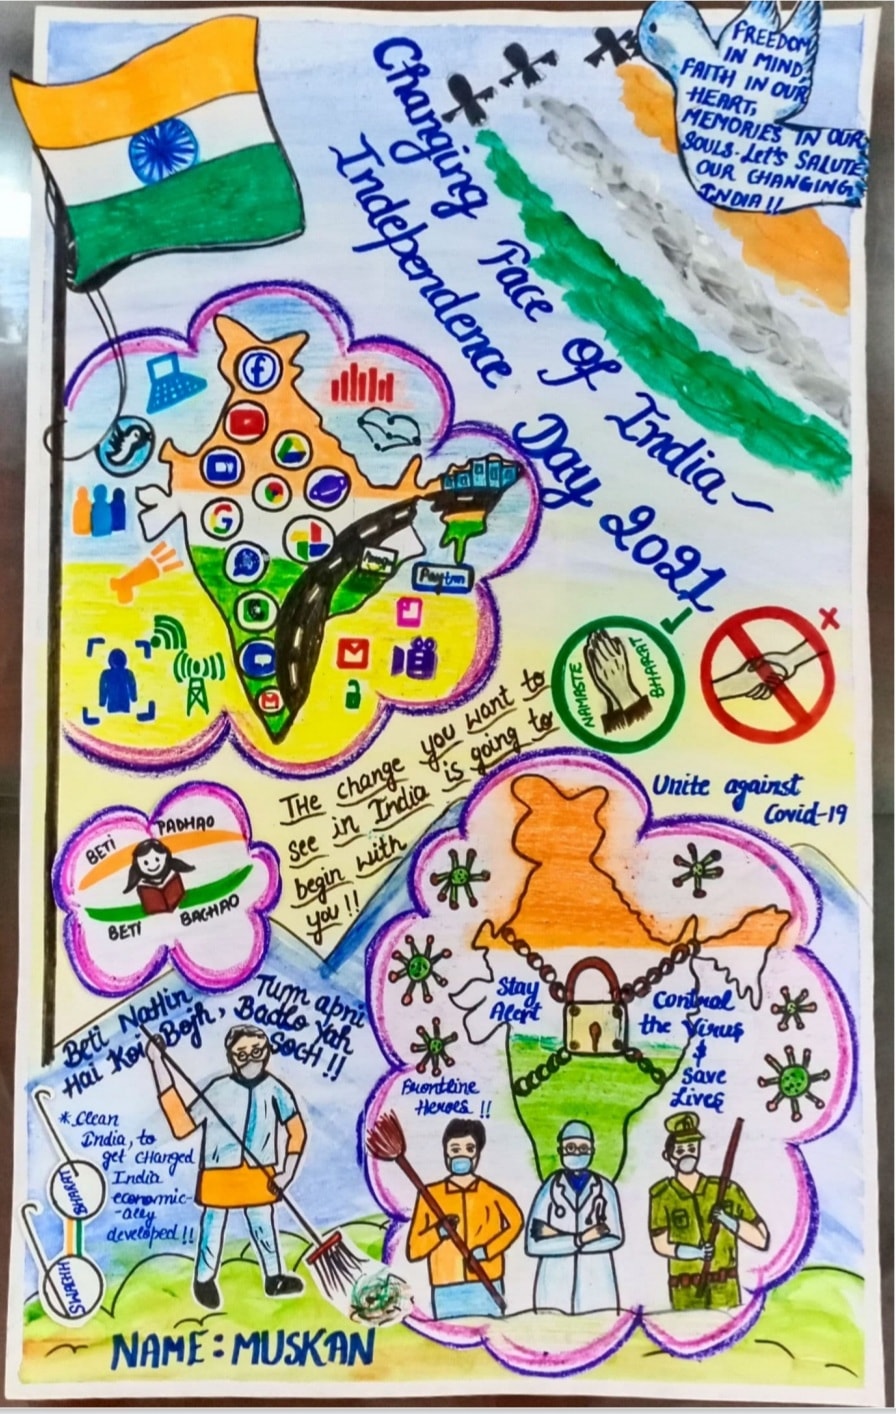 FREEDOM
IN MIND,
FAITH IN OUR
HEART,
MEMORIES IN OUR
SOULS. Let's SALUTE
OUR CHANGING
INDIA !!
Changing Face Of India -
Independence Day 2021
Paytm
NAMASTE
BHARAT
THe change you want to
see in India is going to
begin with
you !!
Unite against
Covid-19
BETI PADHAO
BETI BACHAO
Beti Nahin
Hai Koi Bojh,
Tum apni
Badlo Yah
SOCH !!
* Clean
India, to
get changed
India
economic-
-ally
developed !!
SWACHH
BHARAT
Stay
Alert
Control
the Virus
&
Save
Lives
Frontline
Heroes !!
NAME : MUSKAN